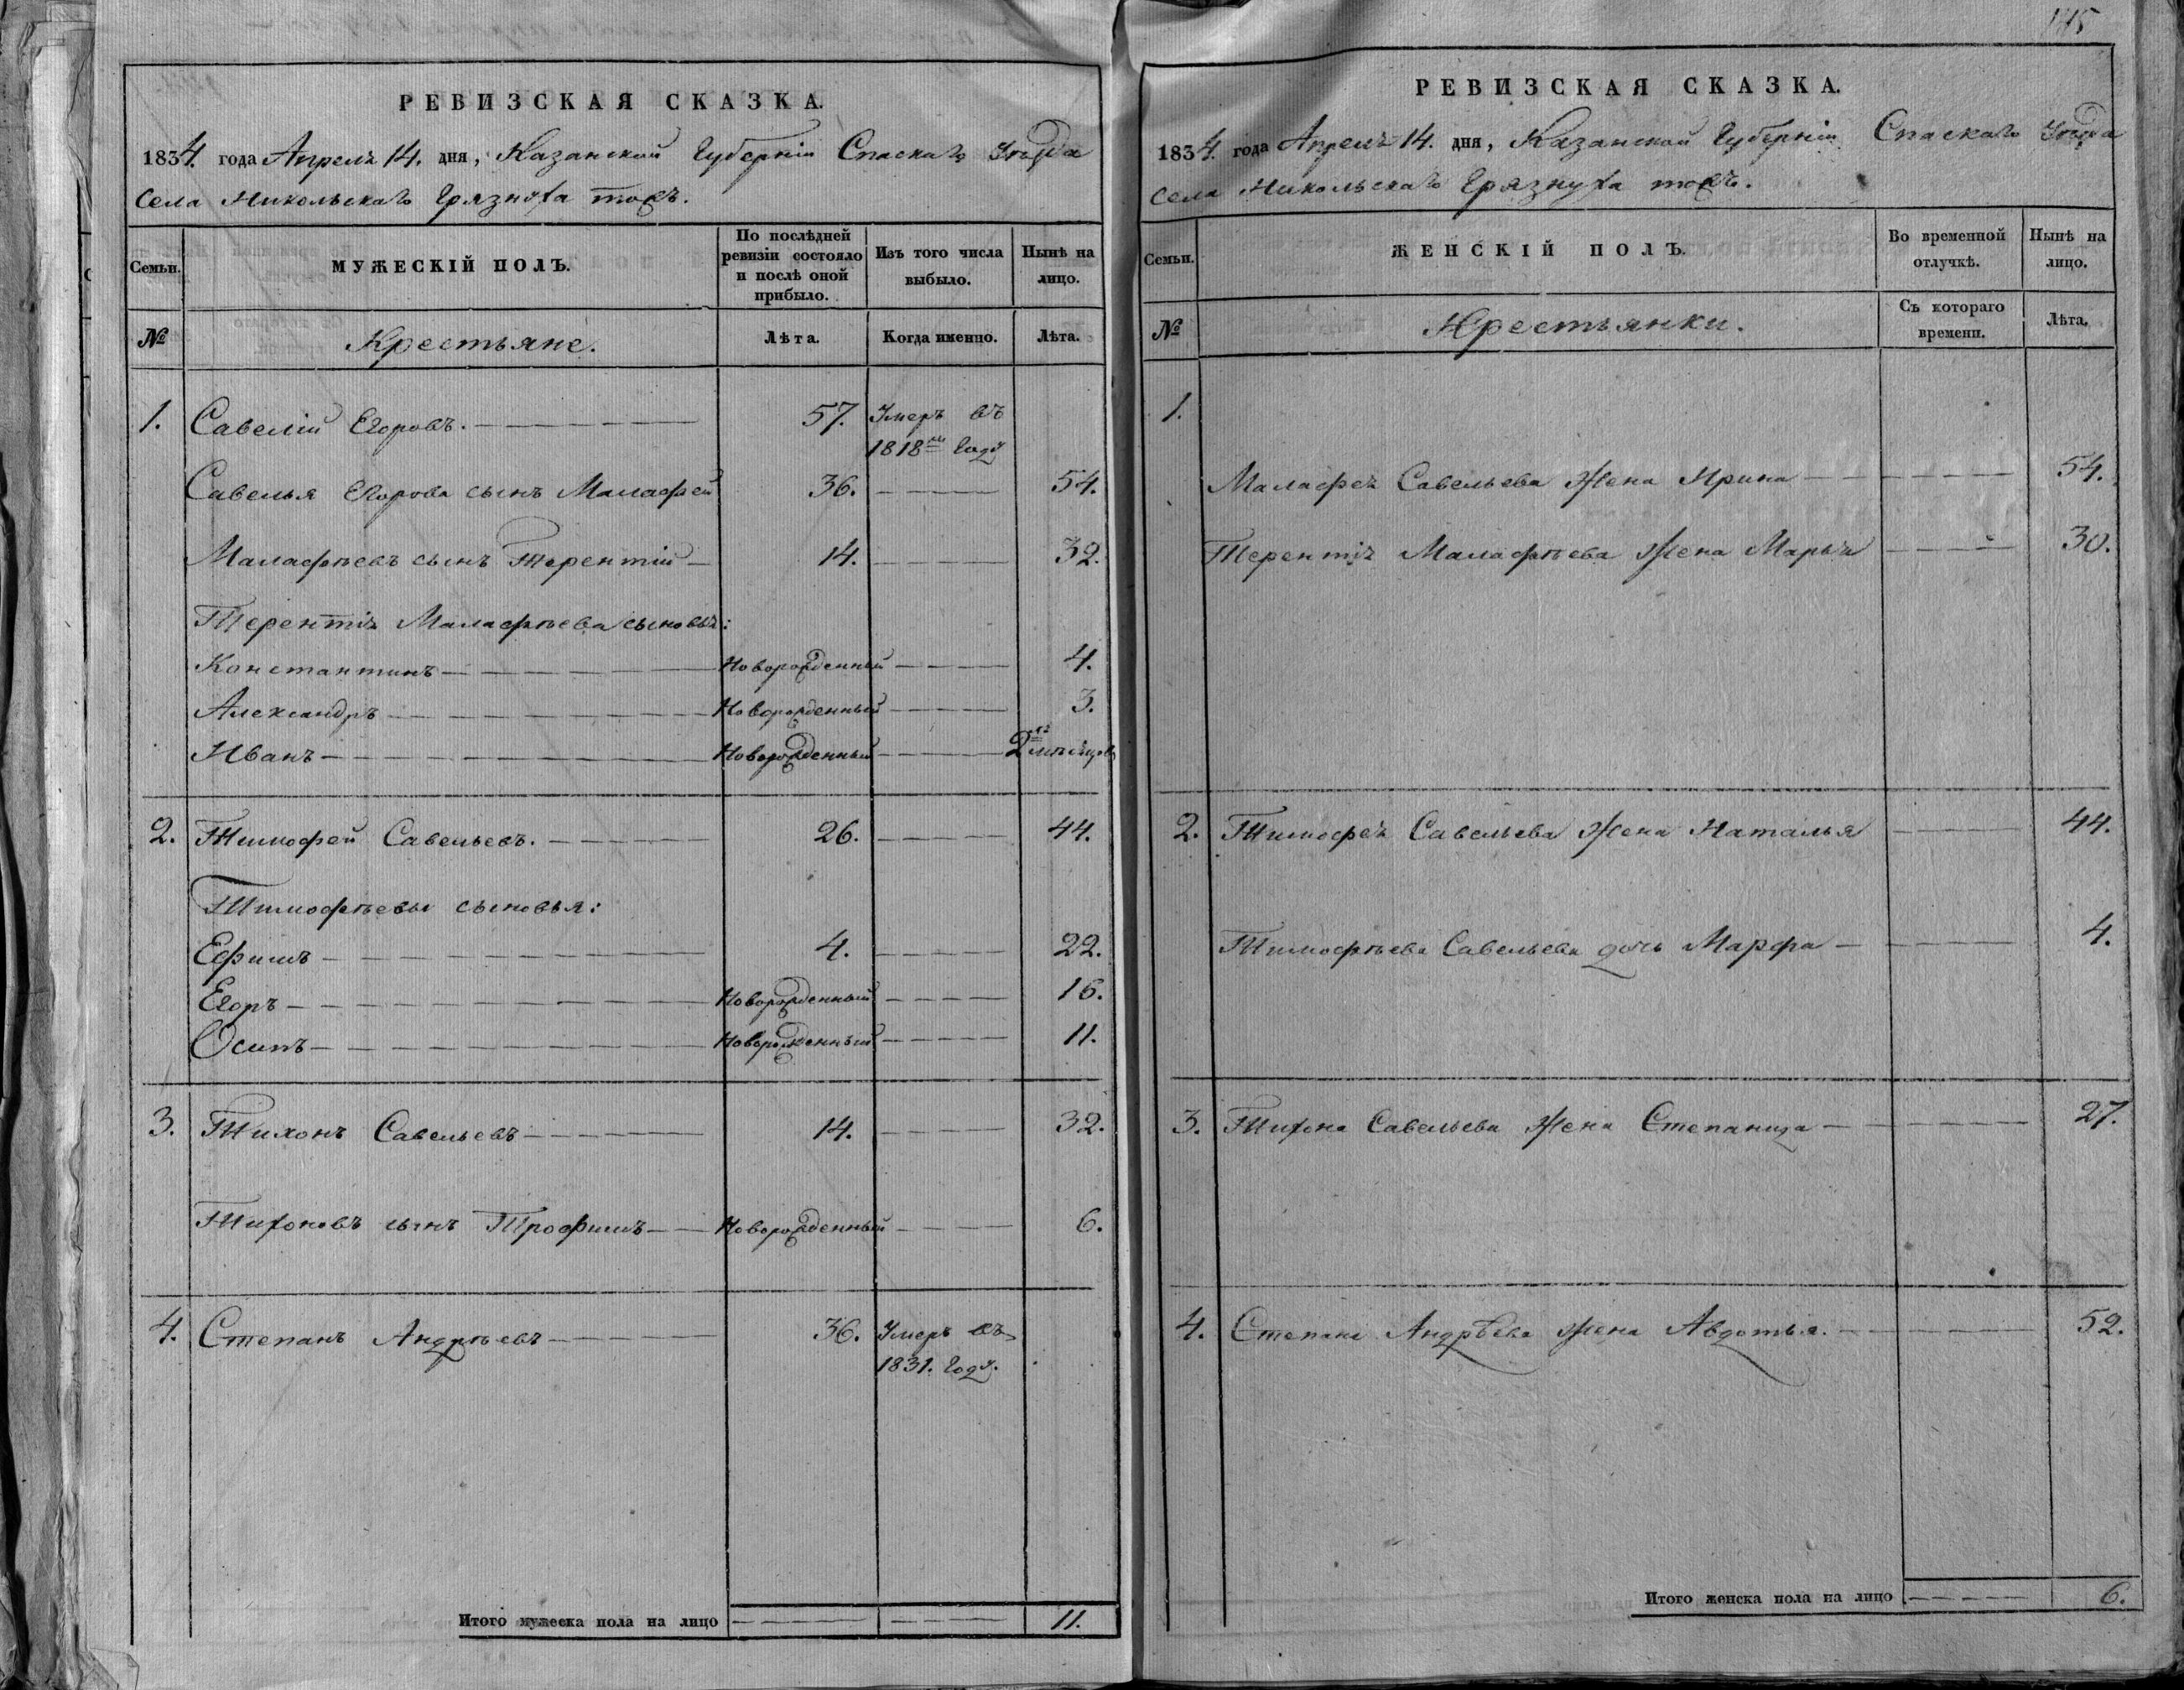 РЕВИЗСКАЯ СКАЗКА.
1834. года Апреля 14. дня, Казанской Губерніи Спаскаго Уѣзда
Села Никольскаго Грязнуха тожъ.
Семьи.
МУЖЕСКІЙ ПОЛЪ.
По послѣдней
ревизіи состояло
и послѣ оной
прибыло.
Изъ того числа
выбыло.
Нынѣ на
лицо.
№
Крестьяне.
Лѣта.
Когда именно.
Лѣта.
1. Савелій Егоровъ. 57. Умеръ въ
1818мъ году
Савелья Егорова сынъ Маласфей 36. 54.
Маласфѣевъ сынъ Терентій 14. 32.
Терентія Маласфѣева сыновья:
Константинъ Новорожденный 4.
Александръ Новорожденный 3.
Иванъ Новорожденный 2хъ мѣсяцовъ
2. Тимофей Савельевъ. 26. 44.
Тимофѣевы сыновья:
Ефимъ 4. 22.
Егоръ Новорожденный 16.
Осипъ Новорожденный 11.
3. Тихонъ Савельевъ 14. 32.
Тихоновъ сынъ Трофимъ Новорожденный 6.
4. Степанъ Андрѣевъ 36. Умеръ въ
1831. году.
Итого мужеска пола на лицо 11.
145
РЕВИЗСКАЯ СКАЗКА.
1834. года Апреля 14. дня, Казанской Губерніи Спаскаго Уѣзда
Села Никольскаго Грязнуха тожъ.
Семьи.
ЖЕНСКІЙ ПОЛЪ.
Во временной
отлучкѣ.
Нынѣ на
лицо.
№
Крестьянки.
Съ котораго
времени.
Лѣта.
1.
Маласфея Савельева жена Ирина 54.
Терентія Маласфѣева жена Марья 30.
2. Тимофея Савельева жена Наталья 44.
Тимофѣева Савельева дочь Марфа 4.
3. Тихона Савельева жена Степанида 27.
4. Степана Андрѣева жена Авдотья. 52.
Итого женска пола на лицо 6.